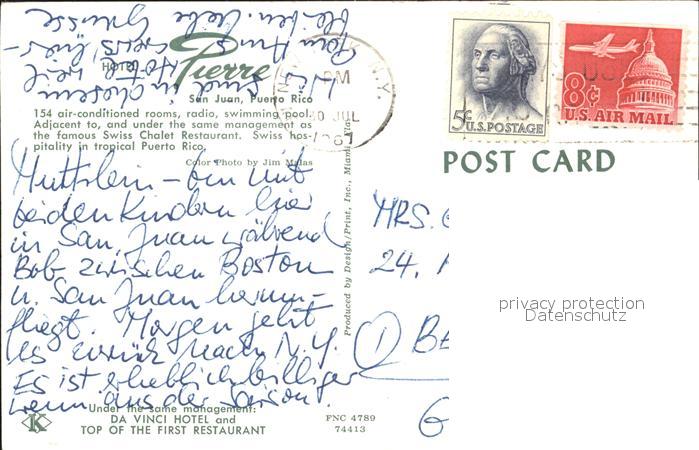 HOTEL Pierre
San Juan, Puerto Rico
154 air-conditioned rooms, radio, swimming pool.
Adjacent to, and under the same management as
the famous Swiss Chalet Restaurant. Swiss hos-
pitality in tropical Puerto Rico.
Color Photo by Jim Malas
Mutterlein - bin mit
beiden Kindern hier
in San Juan während
Bob zwischen Boston
u. San Juan herum-
fliegt. Morgen geht
es zurück nach N.Y.
Es ist erheblich billiger
wenn aus der Saison.
Wir sind in diesem
Hotel weil
bleiben. Liebe Grüsse
Under the same management:
DA VINCI HOTEL and
TOP OF THE FIRST RESTAURANT
K
FNC 4789
74413
Produced by Design/Print, Inc., Miami, Fla.
N.Y.
PM
10 JUL
1967
5c
U.S. POSTAGE
8¢
U.S. AIR MAIL
POST CARD
MRS.
24,
1 BE
G
privacy protection
Datenschutz